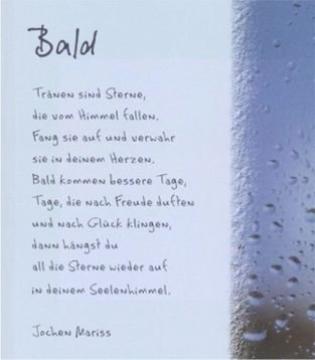 Bald
Tränen sind Sterne,
die vom Himmel fallen.
Fang sie auf und verwahr
sie in deinem Herzen.
Bald kommen bessere Tage,
Tage, die nach Freude duften
und nach Glück klingen,
dann hängst du
all die Sterne wieder auf
in deinem Seelenhimmel.
Jochen Mariss